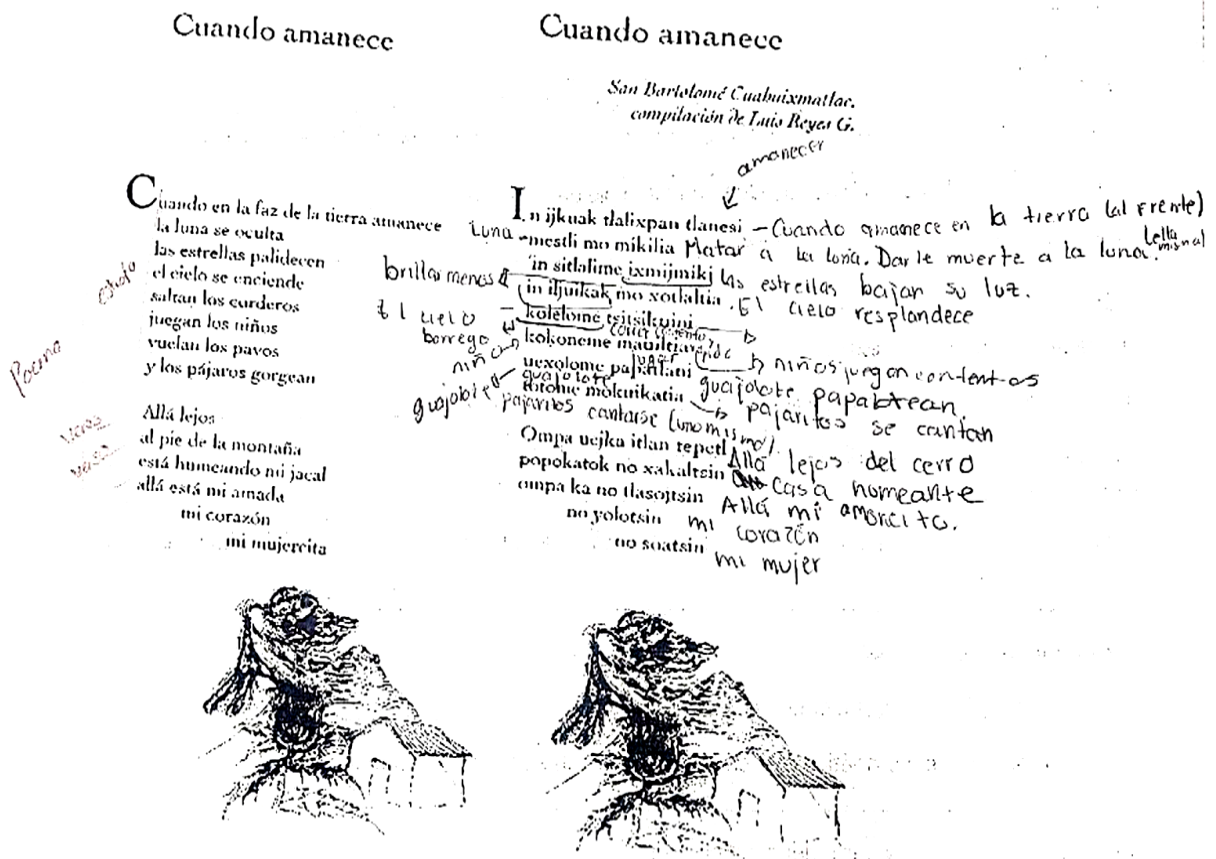 Cuando amanece
Cuando en la faz de la tierra amanece
la luna se oculta
las estrellas palidecen
el cielo se enciende
saltan los corderos
juegan los niños
vuelan los pavos
y los pájaros gorgean
Allá lejos
al pie de la montaña
está humeando mi jacal
allá está mi amada
mi corazón
mi mujercita
Poema
Cuando amanece
San Bartolomé Cuahuixmatlac.
compilación de Luis Reyes G.
amanecer
In ijkuak tlalixpan tlanesi - Cuando amanece en la tierra (al frente)
Luna - mestli mo mikilia Matar a la luna. Darle muerte a la luna. (ella misma)
brillar menos in sitlalime ixmijmiki las estrellas bajan su luz.
El cielo in iljuikak mo xotlaltia. El cielo resplandece
borrego kolelome tsitsikuini
niños kokoneme jugar niños juegan contentos
guajolote uexolome papatlani guajolote guajolote papalotean.
totome mokuikatia pajaritos se cantan
pajaritos cantarse (uno mismo)
Ompa uejka itlan tepetl Allá lejos del cerro
popokatok no xakaltsin casa homeante
ompa ka no tlasojtsin Allá mi amorcito.
no yolotsin mi corazón
no soatsin mi mujer